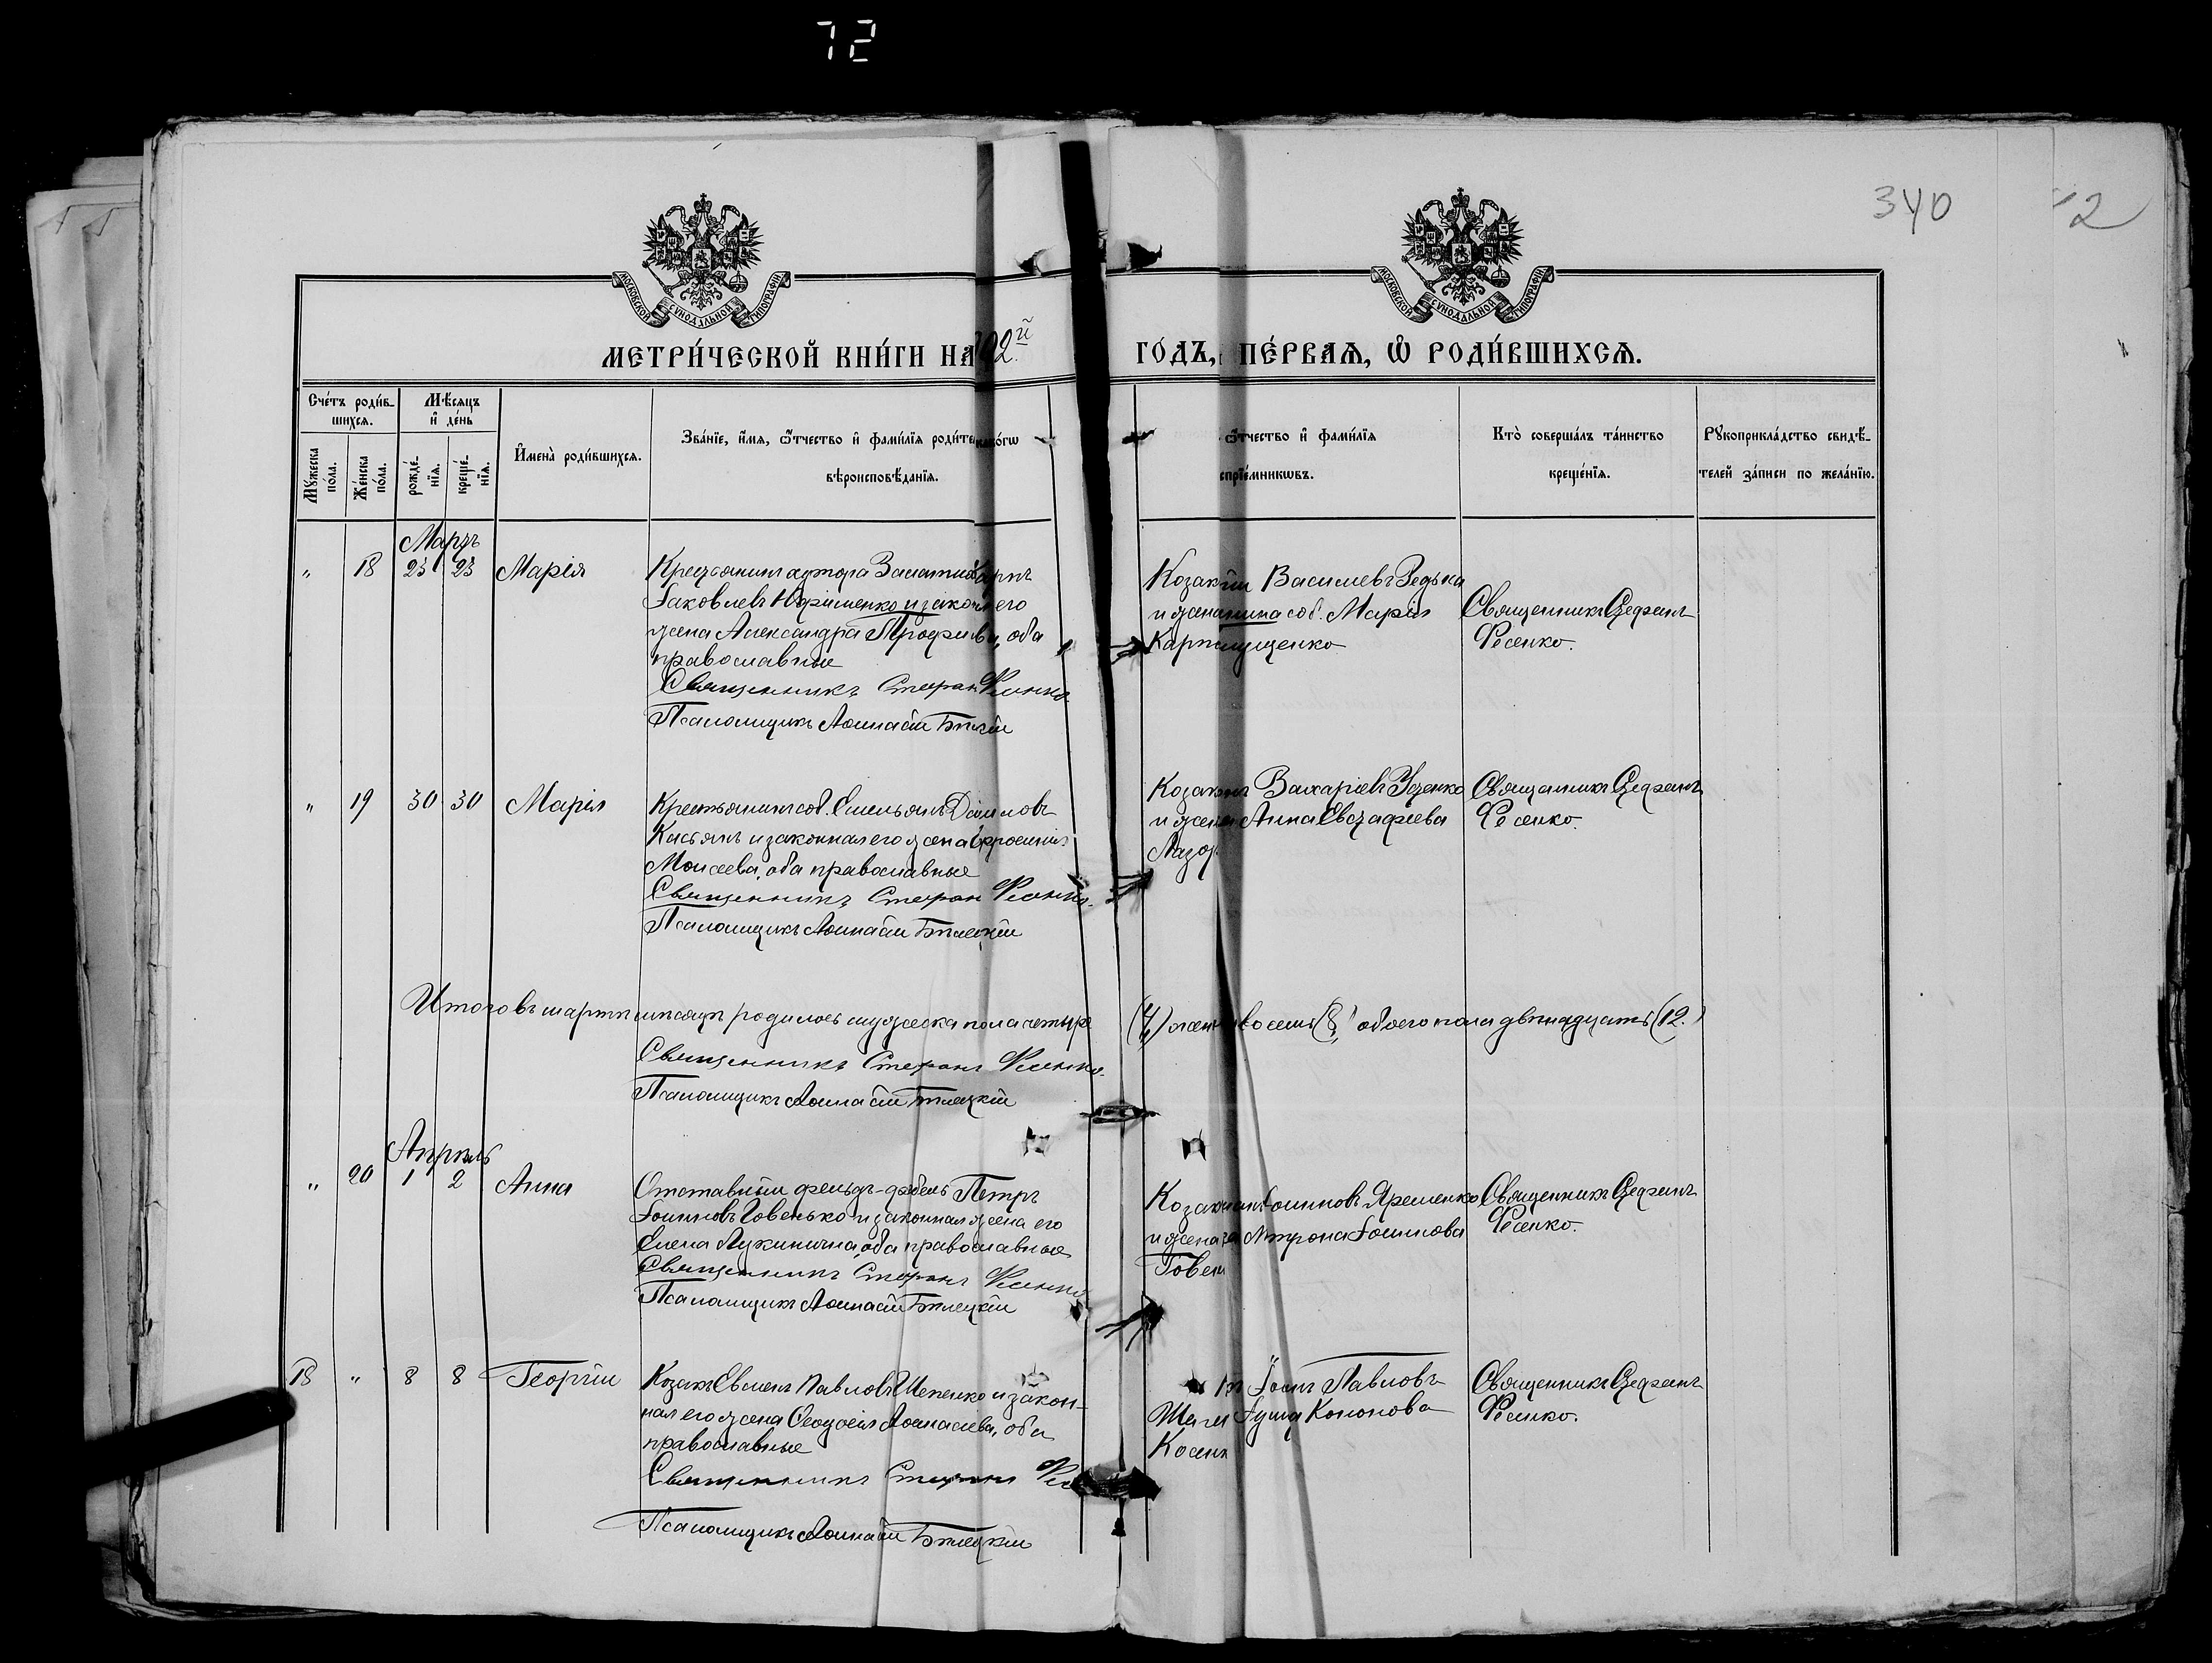 72
340
2
МОСКОВСКОЙ СѴНОДАЛЬНОЙ ТИПОГРАФІИ
МОСКОВСКОЙ СѴНОДАЛЬНОЙ ТИПОГРАФІИ
МЕТРИ́ЧЕСКОЙ КНИ́ГИ НА 92й ГО́ДЪ, ПЕ́РВАѦ, Ѡ҆ РОДИ́ВШИХСѦ.
Сче́тъ роди́в-
шихсѧ.
Мꙋ́жеска по́ла.
Же́нска по́ла.
Мѣ́сѧцъ
и҆ де́нь
рожде́-нїѧ.
креще́-нїѧ.
И҆мена̀ роди́вшихсѧ.
Зва́нїе, и҆́мѧ, ѻ҆́тчество и҆ фами́лїѧ роди́те
вѣроисповѣ́данїѧ.
ѻ҆́тчество и҆ фами́лїѧ
спрїе́мникѡвъ.
Кто̀ соверша́лъ та́инство
креще́нїѧ.
Рꙋкоприкла́дство свидѣ́-
телей за́писи по жела́нїю.
Мартъ
" 18 23 23 Марія
Крестьянинъ хутора
Іаковлевъ и закон его
жена Александра оба
православные
Священникъ Стефан Фесенко
Псаломщикъ Аѳанасій Бѣлецкій
Козак Василіевъ Редька
и жена соб. Марія
Карп
Священникъ Стефанъ
Фесенко.
" 19 30 30 Марія
Крестьянинъ соб. Емельянъ
Касьянъ и законная его жена
Моисеева, оба православные
Священникъ Стефан Фесенко.
Псаломщикъ Аѳанасій Бѣлецкій
Козак Захаріевъ Уценко
и жена Анна Евстафіева
Лазор
Священникъ Стефанъ
Фесенко.
Итого въ мартѣ мѣсяцѣ родилось мужеска пола четыре (4) жен восемь (8) обоего пола двѣнадцать (12.)
Священникъ Стефанъ Фесенко.
Псаломщикъ Аѳанасій Бѣлецкій
Апрѣль
" 20 1 2 Анна
Отставный фельдъ-фебель Петръ
Іоанновъ Говенько и законная жена его
Елена Лукинична, оба православные
Священникъ Стефанъ Фесенко
Псаломщикъ Аѳанасій Бѣлецкій
Козак Іоанновъ Яременко
и жена Матрона Іоаннова
Говен
Священникъ Стефанъ
Фесенко.
18 " 8 8 Георгій
Козакъ Евменъ Павловъ Шепенко и закон-
ная его жена Ѳеодосія Аѳанасіева, оба
православные
Священникъ Стефанъ Фес
Псаломщикъ Аѳанасій Бѣлецкій
Іоанъ Павловъ
Кононова
Косен
Священникъ Стефанъ
Фесенко.